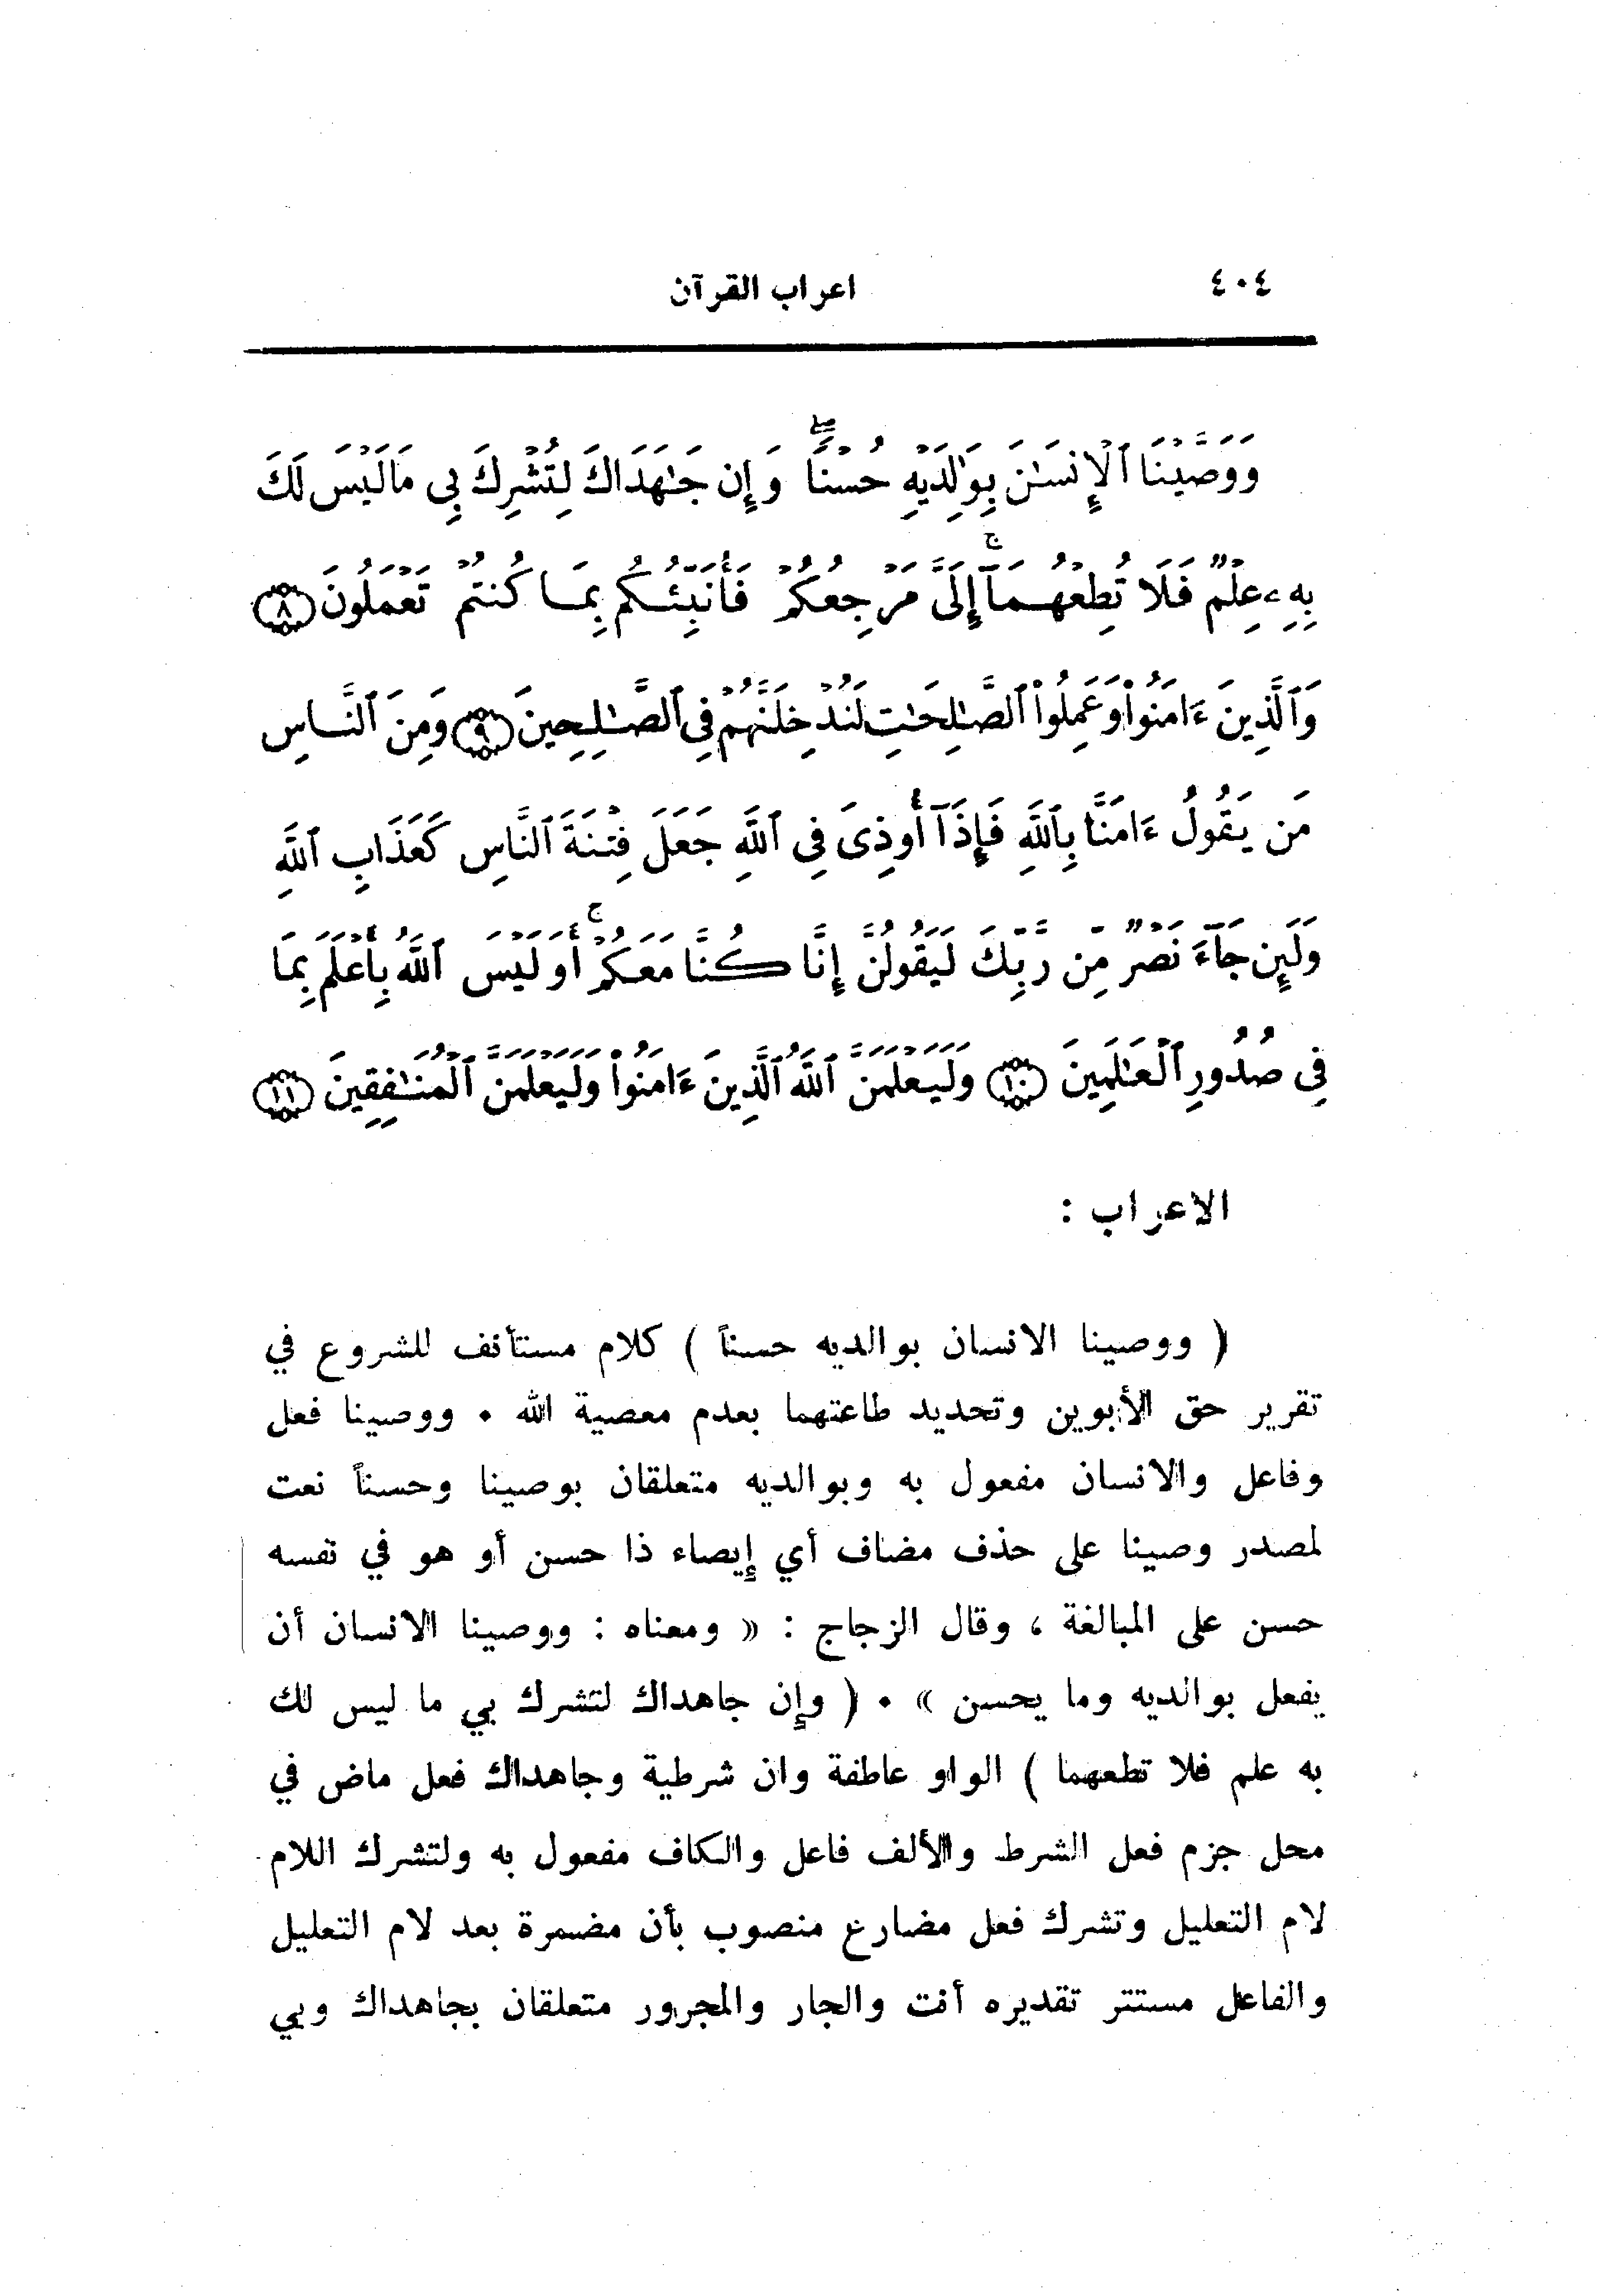 ٤٠٤
اعراب القرآن
وَوَصَّيْنَا ٱلْإِنسَـٰنَ بِوَٰلِدَيْهِ حُسْنًا ۖ وَإِن جَـٰهَدَاكَ لِتُشْرِكَ بِى مَا لَيْسَ لَكَ
بِهِۦ عِلْمٌ فَلَا تُطِعْهُمَآ ۚ إِلَىَّ مَرْجِعُكُمْ فَأُنَبِّئُكُم بِمَا كُنتُمْ تَعْمَلُونَ ﴿٨﴾
وَٱلَّذِينَ ءَامَنُوا۟ وَعَمِلُوا۟ ٱلصَّـٰلِحَـٰتِ لَنُدْخِلَنَّهُمْ فِى ٱلصَّـٰلِحِينَ ﴿٩﴾ وَمِنَ ٱلنَّاسِ
مَن يَقُولُ ءَامَنَّا بِٱللَّهِ فَإِذَآ أُوذِىَ فِى ٱللَّهِ جَعَلَ فِتْنَةَ ٱلنَّاسِ كَعَذَابِ ٱللَّهِ
وَلَئِن جَآءَ نَصْرٌ مِّن رَّبِّكَ لَيَقُولُنَّ إِنَّا كُنَّا مَعَكُمْ ۚ أَوَلَيْسَ ٱللَّهُ بِأَعْلَمَ بِمَا
فِى صُدُورِ ٱلْعَـٰلَمِينَ ﴿١٠﴾ وَلَيَعْلَمَنَّ ٱللَّهُ ٱلَّذِينَ ءَامَنُوا۟ وَلَيَعْلَمَنَّ ٱلْمُنَـٰفِقِينَ ﴿١١﴾
الاعراب :
( ووصينا الانسان بوالديه حسناً ) كلام مستأنف للشروع في
تقرير حق الأبوين وتحديد طاعتهما بعدم معصية الله ٠ ووصينا فعل
وفاعل والانسان مفعول به وبوالديه متعلقان بوصينا وحسناً نعت
لمصدر وصينا على حذف مضاف أي إيصاء ذا حسن أو هو في نفسه
حسن على المبالغة ، وقال الزجاج : « ومعناه : ووصينا الانسان أن
يفعل بوالديه وما يحسن » ٠ ( وإن جاهداك لتشرك بي ما ليس لك
به علم فلا تطعهما ) الواو عاطفة وان شرطية وجاهداك فعل ماض في
محل جزم فعل الشرط والألف فاعل والكاف مفعول به ولتشرك اللام
لام التعليل وتشرك فعل مضارع منصوب بأن مضمرة بعد لام التعليل
والفاعل مستتر تقديره أنت والجار والمجرور متعلقان بجاهداك وبي